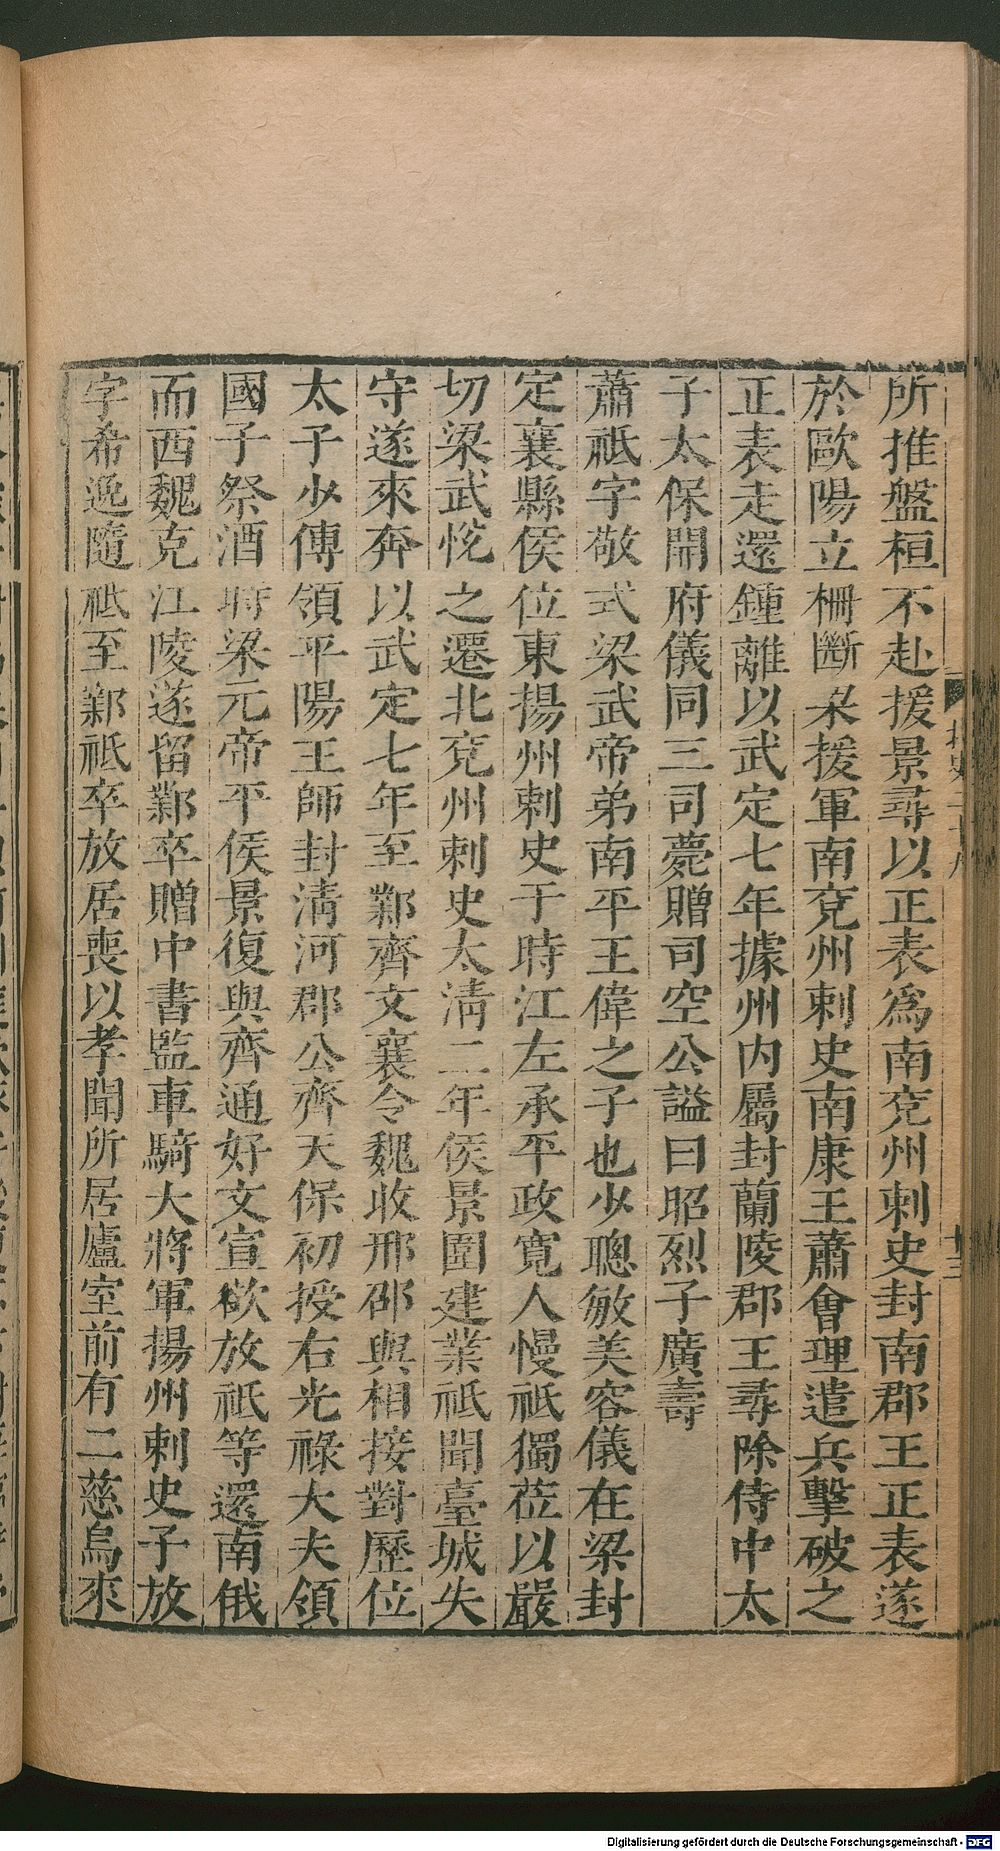 所推盤桓不赴援景尋以正表爲南兗州刺史封南郡王正表遂
於歐陽立柵斷梁援軍南兗州刺史南康王蕭會理遣兵擊破之
正表走還鍾離以武定七年據州内屬封蘭陵郡王尋除侍中太
子太保開府儀同三司薨贈司空公謚曰昭烈子廣壽
蕭祗字敬式梁武帝弟南平王偉之子也少聰敏美容儀在梁封
定襄縣侯位東揚州刺史于時江左承平政寬人慢祗獨莅以嚴
切梁武悅之遷北兗州刺史太清二年侯景圍建業祗聞臺城失
守遂來奔以武定七年至鄴齊文襄令魏收邢邵與相接對歷位
太子少傅領平陽王師封清河郡公齊天保初授右光祿大夫領
國子祭酒時梁元帝平侯景復與齊通好文宣欲放祗等還南俄
而西魏克江陵遂留鄴卒贈中書監車騎大將軍揚州刺史子放
字希逸隨祗至鄴祗卒放居喪以孝聞所居廬室前有二慈烏來
Digitalisierung gefördert durch die Deutsche Forschungsgemeinschaft - DFG